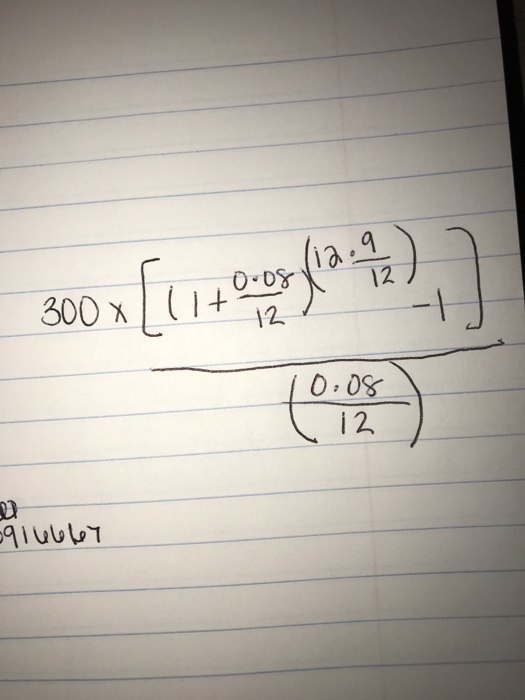 300 x [(1+ 0.08/12)^(12·9/12) -1]
(0.08/12)
916667